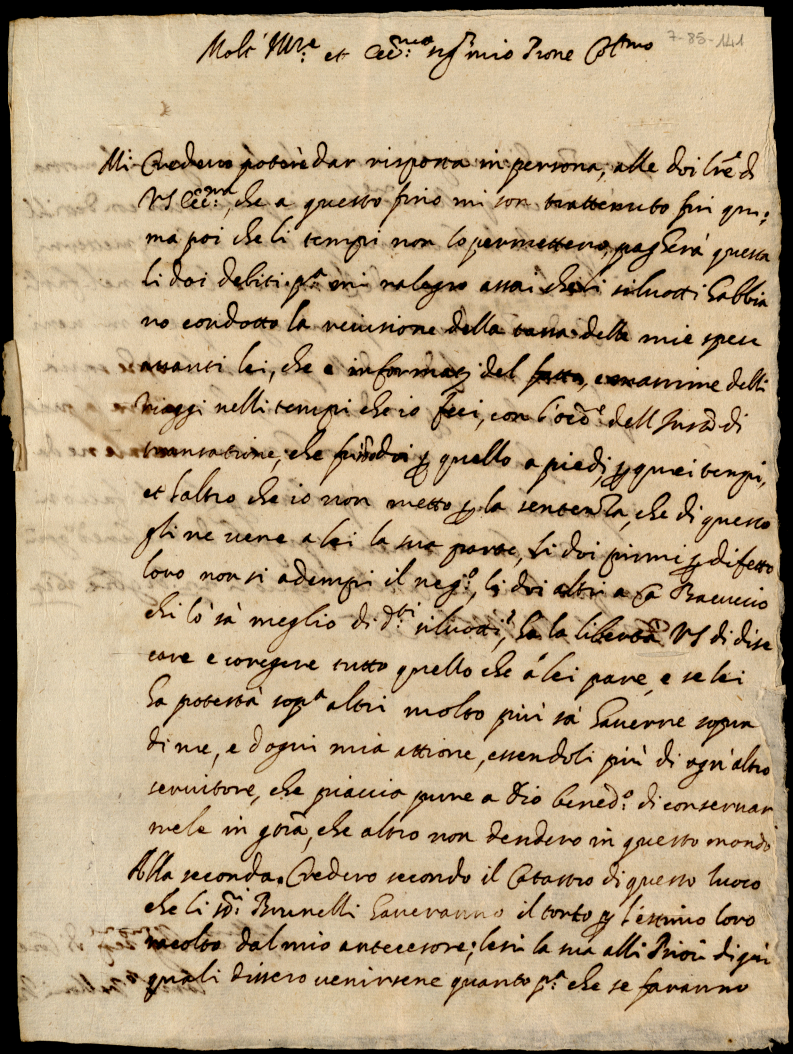 7-85-141
Molt' Ill.re et Ecc.mo sig.r mio Prone Col.mo
Mi Credevo potere dar risposta in persona, alle doi lre di
VS Ecc.ma, che a questo fino mi son trattenuto fin qui;
ma poi che li tempi non lo permettero, pagherà questa
li doi debiti. p.a mi ralegro assai che li silvotti habbia
no condotto la revisione della tassa delle mie spese
avanti lei, che e informaa del fatto, esamine delli
viaggi nelli tempi che io feci, con l'occ.e dell
transatione, che quello a piedi, p quei tempi,
et l'altro che io non metto p la sentenza, che di questo
gli ne vene a lei la sua parte, Li doi primi p difetto
loro non si adempi il neg.o, li doi altri a Baccuccio
chi lo sà meglio di d.ti silvotti, ha la libertà VS di dise
care e coregere tutto quello che à lei pare, e se lei
ha potestà sop.a altri molto più sà haverne sopra
di me, e d ogni mia attione, essendoli più di ogn'altro
servitore, che piaccia pure a Dio bened.o di conservar
mele in gra, che altro non dendero in questo mondo
Alla seconda. Credero secondo il Catastro di questo luoco
che li sdi Brunelli haveranno il torto p l'estimo loro
racolto dal mio antecesore; lesi la sua alli Priori di qui
quali dissero venirsene quanto p.a che se faranno